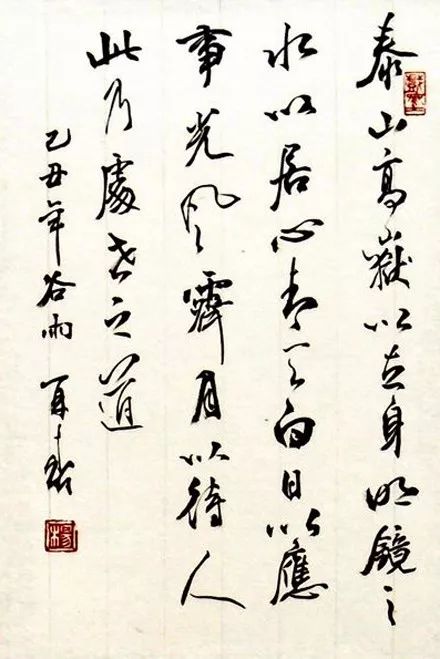 泰山高嶽以立身明鏡止
水以居心青天白日以應
事光風霽月以待人
此乃處世之道
己丑年谷雨